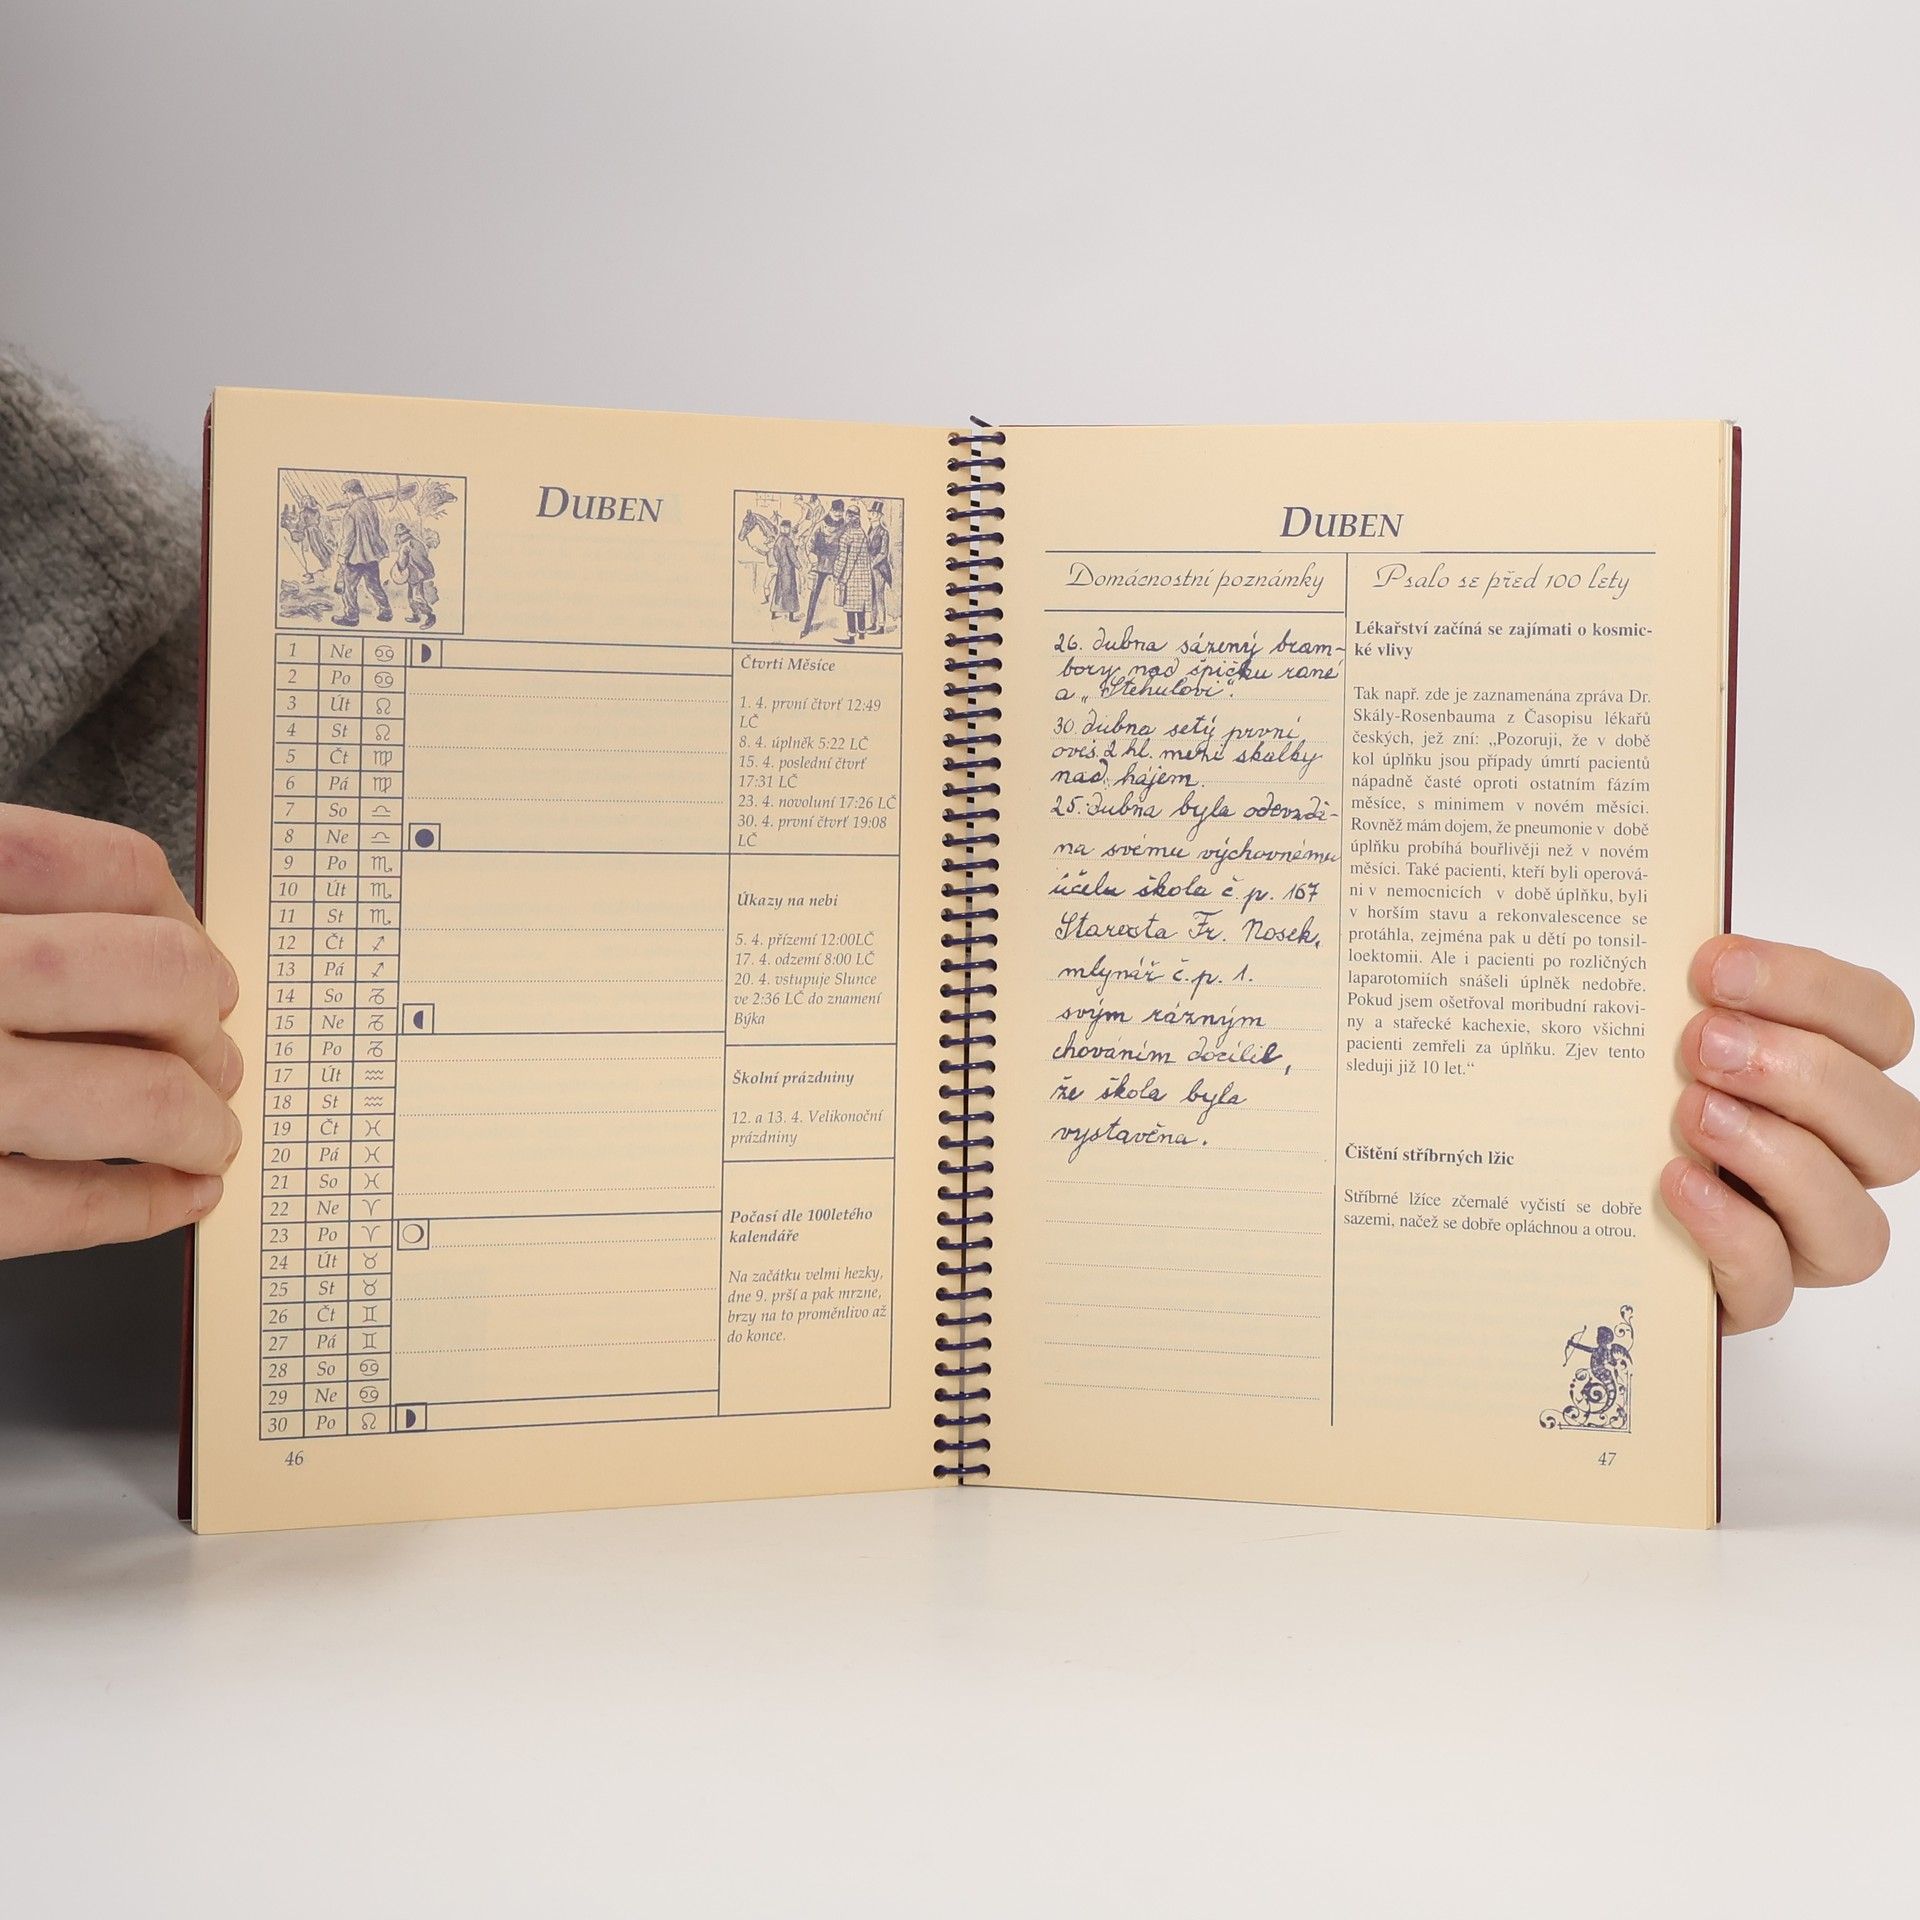 DUBEN
1 Ne
2 Po
3 Út
4 St
5 Čt
6 Pá
7 So
8 Ne
9 Po
10 Út
11 St
12 Čt
13 Pá
14 So
15 Ne
16 Po
17 Út
18 St
19 Čt
20 Pá
21 So
22 Ne
23 Po
24 Út
25 St
26 Čt
27 Pá
28 So
29 Ne
30 Po
Čtvrti Měsíce
1. 4. první čtvrť 12:49
LČ
8. 4. úplněk 5:22 LČ
15. 4. poslední čtvrť
17:31 LČ
23. 4. novoluní 17:26 LČ
30. 4. první čtvrť 19:08
LČ
Úkazy na nebi
5. 4. přízemí 12:00LČ
17. 4. odzemí 8:00 LČ
20. 4. vstupuje Slunce
ve 2:36 LČ do znamení
Býka
Školní prázdniny
12. a 13. 4. Velikonoční
prázdniny
Počasí dle 100letého
kalendáře
Na začátku velmi hezky,
dne 9. prší a pak mrzne,
brzy na to proměnlivo až
do konce.
46
DUBEN
Domácnostní poznámky
26. dubna sázený bram-
bory nad špičku rané
a „Stehulovi“.
30. dubna setý první
oves 2 hl. mezi skalky
nad hájem.
25. dubna byla odevzdá-
na svému výchovnému
účelu škola č. p. 167
Starosta Fr. Nosek,
mlynář č. p. 1.
svým rázným
chovaním docílil,
že škola byla
vystavěna.
Psalo se před 100 lety
Lékařství začíná se zajímati o kosmic-
ké vlivy
Tak např. zde je zaznamenána zpráva Dr.
Skály-Rosenbauma z Časopisu lékařů
českých, jež zní: „Pozoruji, že v době
kol úplňku jsou případy úmrtí pacientů
nápadně časté oproti ostatním fázím
měsíce, s minimem v novém měsíci.
Rovněž mám dojem, že pneumonie v době
úplňku probíhá bouřlivěji než v novém
měsíci. Také pacienti, kteří byli operová-
ni v nemocnicích v době úplňku, byli
v horším stavu a rekonvalescence se
protáhla, zejména pak u dětí po tonsil-
loektomii. Ale i pacienti po rozličných
laparotomiích snášeli úplněk nedobře.
Pokud jsem ošetřoval moribudní rakovi-
ny a stařecké kachexie, skoro všichni
pacienti zemřeli za úplňku. Zjev tento
sleduji již 10 let.“
Čištění stříbrných lžic
Stříbrné lžíce zčernalé vyčistí se dobře
sazemi, načež se dobře opláchnou a otrou.
47